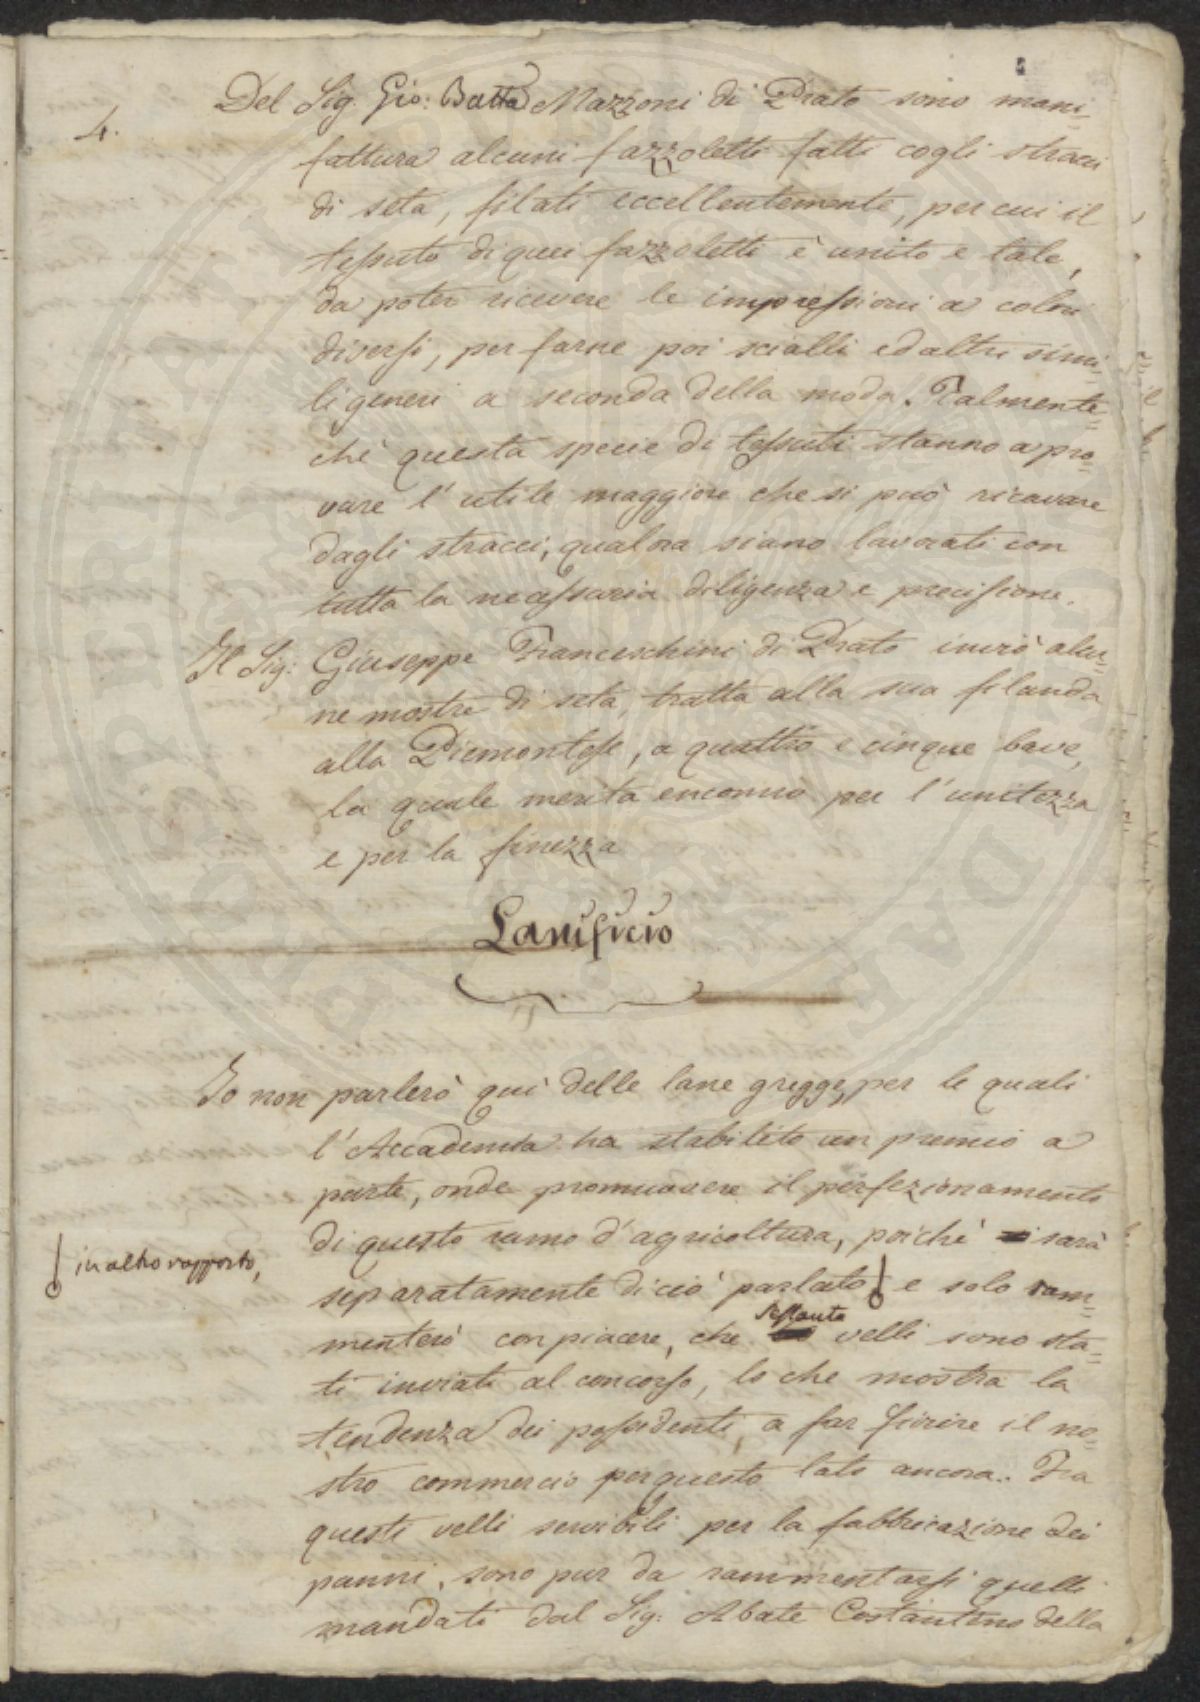 4.
Del Sig. Gio: Batta Mazzoni di Prato sono mani=
fattura alcuni fazzoletti fatti cogli stracci
di seta, filati eccellentemente, per cui il
tessuto di quei fazzoletti è unito e tale,
da poter ricevere le impressioni a colori
diversi, per farne poi scialli ed altri simi=
li generi a seconda della moda. Talmente=
chè questa specie di tessuti stanno a pro=
vare l'utile maggiore che si può ricavare
dagli stracci, qualora siano lavorati con
tutta la necessaria diligenza e precisione.
Il Sig: Giuseppe Franceschini di Prato inviò alcu=
ne mostre di seta, tratta alla sua filanda
alla Piemontese, a quattro e cinque bave,
la quale merita encomio per l'unitezza
e per la finezza
Lanificio
Io non parlerò quì delle lane gregge, per le quali
l'Accademia ha stabilito un premio a
parte, onde promuovere il perfezionamento
di questo ramo d'agricoltura, poichè sarà
in altro rapporto,
separatamente di ciò parlato e solo ram=
menterò con piacere, che sessanta velli sono sta=
ti inviati al concorso, lo che mostra la
tendenza dei possidenti a far fiorire il no=
stro commercio per questo lato ancora. Fra
questi velli servibili per la fabbricazione dei
panni, sono pur da rammentarsi quelli
mandati dal Sig: Abate Costantino della